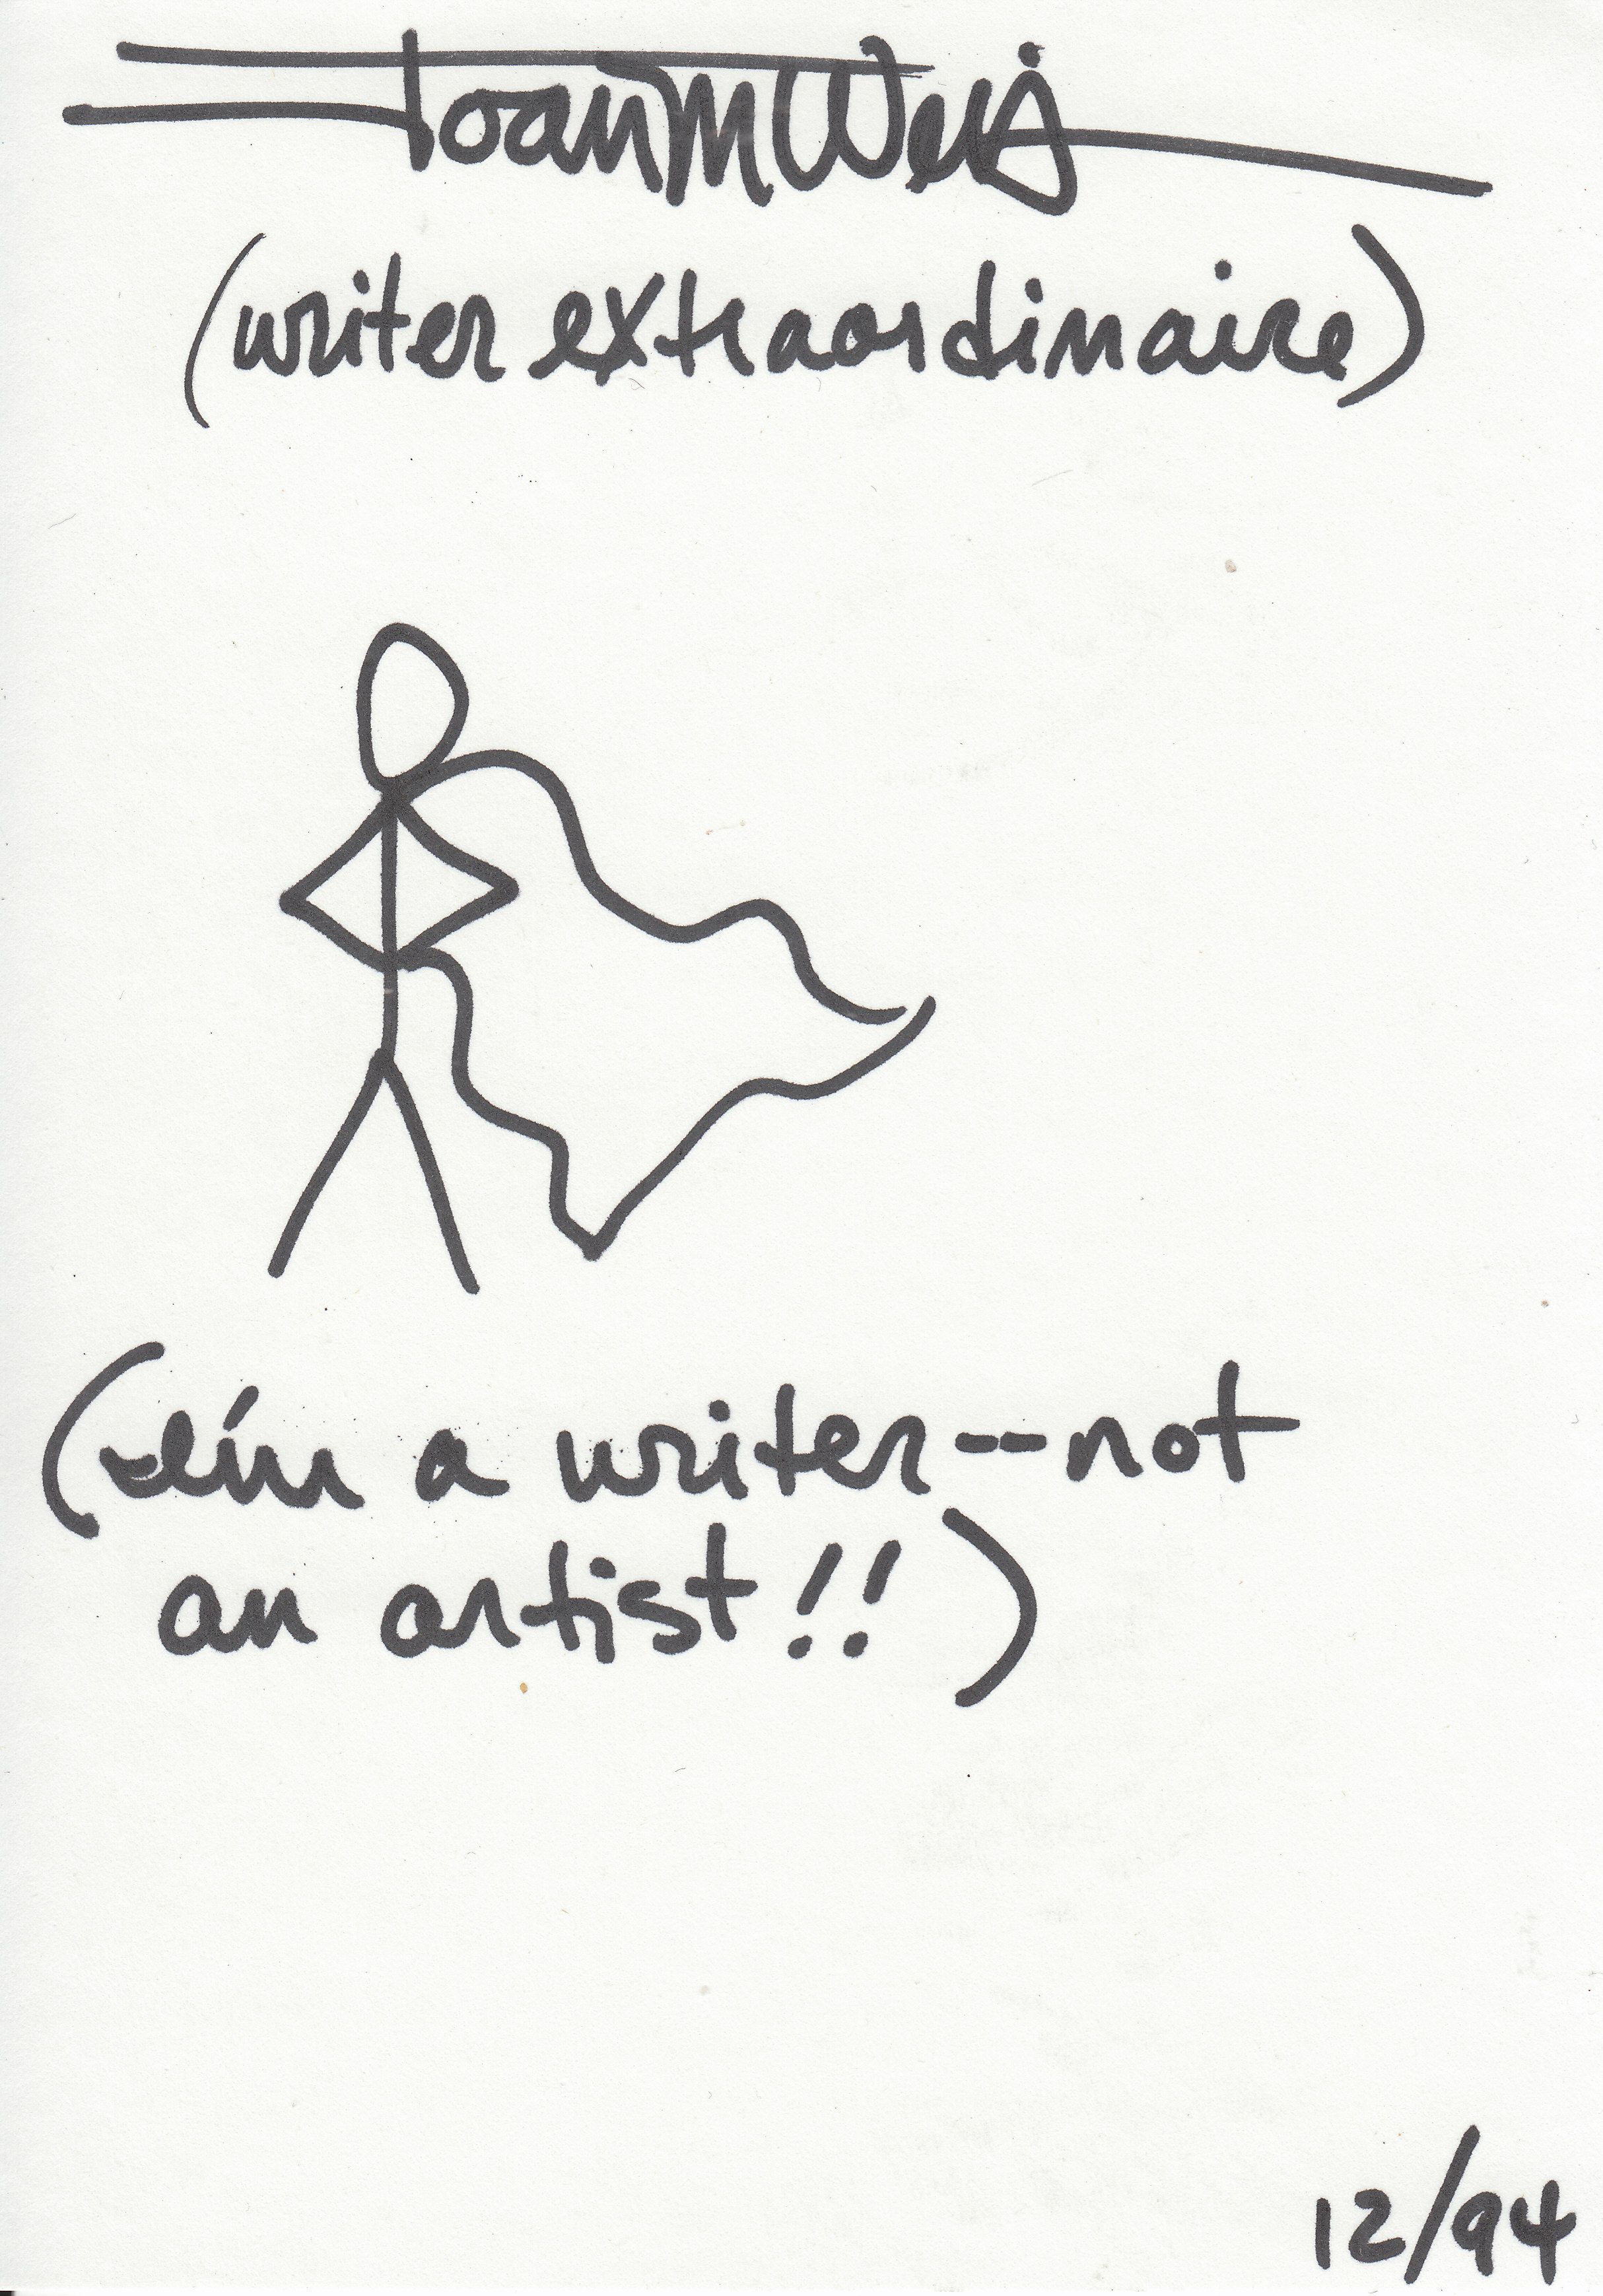 Joan M Weis
(writer extraordinaire)
(I'm a writer--not
an artist!!)
12/94